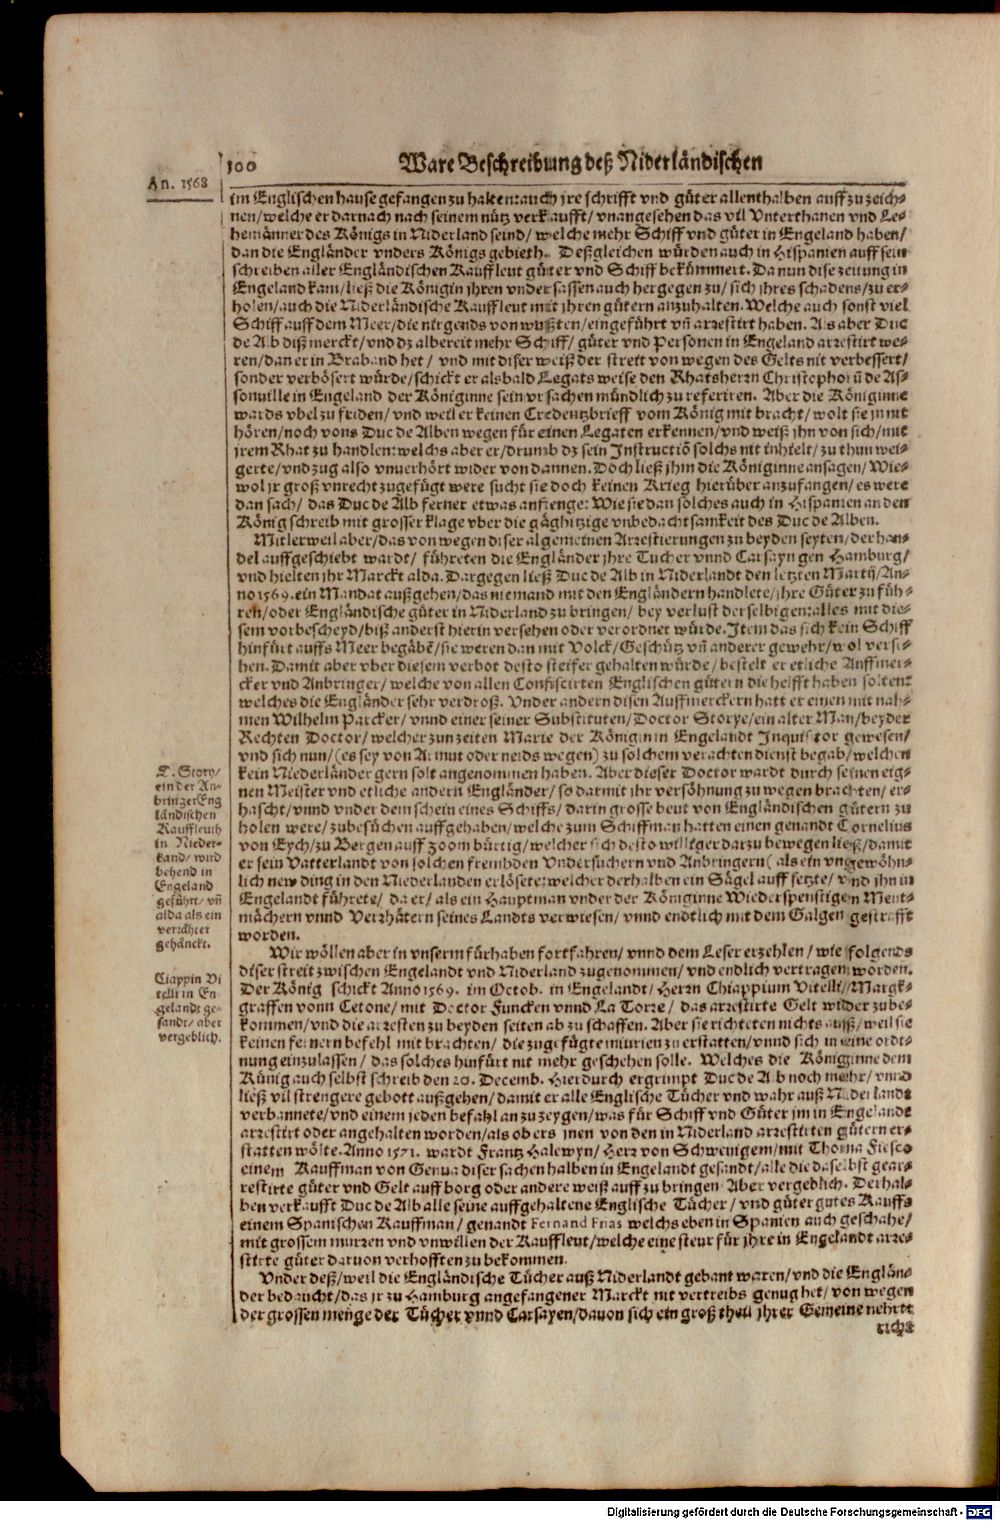 100 Ware Beschreibung deß Niderländischen
An. 1568
im Englischen hause gefangen zu halten: auch jre schrifft vnd güter allenthalben auff zu zeich-
nen/ welche er darnach nach seinem nütz verkaufft/ vnangesehen das vil Vnterthanen vnd Le-
henmänner des Königs in Niderland seind/ welche mehr Schiff vnd güter in Engeland haben/
dan die Engländer vnders Königs gebieth. Deßgleichen würden auch in Hispanien auff sein
schreiben aller Engländischen Kauffleut güter vnd Schiff bekümmert. Da nun dise zeitung in
Engeland kam/ ließ die Königin jhren vndersassen auch hergegen zu/ sich jhres schadens/ zu er-
holen/ auch die Niderländische Kauffleut mit jhren gütern anzuhalten. Welche auch sonst viel
Schiff auff dem Meer/ die nirgends von wußten/ eingeführt vñ arrestirt haben. Als aber Duc
de Alb diß merckt/ vnd dz albereit mehr Schiff/ güter vnd Personen in Engeland arrestirt we-
ren/ dan er in Braband het/ vnd mit diser weiß der streit von wegen des Gelts nit verbessert/
sonder verbösert würde/ schickt er alsbald Legats weise den Rhatsherrn Christophorū de As-
sonuille in Engeland der Königinne sein vrsachen mündlich zu referiren. Aber die Königinne
wards vbel zu friden/ vnd weil er keinen Credentzbrieff vom König mit bracht/ wolt sie jn nit
hören/ noch vons Duc de Alben wegen für einen Legaten erkennen/ vnd weiß jhn von sich/ mit
jrem Rhat zu handlen: welchs aber er/ drumb dz sein Instructiō solchs nit inhielt/ zu thun wei-
gerte/ vnd zug also vnuerhört wider von dannen. Doch ließ jhm die Königinne ansagen/ Wie-
wol jr groß vnrecht zugefügt were sucht sie doch keinen Krieg hierüber anzufangen/ es were
dan sach/ das Duc de Alb ferner etwas anfienge: Wie sie dan solches auch in Hispanien an den
König schreib mit grosser klage vber die gäghitzige vnbedachtsamkeit des Duc de Alben.
Mitlerweil aber/ das von wegen diser algemeinen Arrestierungen zu beyden seyten/ der han-
del auffgeschiebt wardt/ führeten die Engländer jhre Tucher vnnd Carsayn gen Hamburg/
vnd hielten jhr Marckt alda. Dargegen ließ Duc de Alb in Niderlandt den letzten Martij/ An-
no 1569. ein Mandat außgehen/ das niemand mit den Engländern handlete/ jhre Güter zu füh-
ren/ oder Engländische güter in Niderland zu bringen/ bey verlust derselbigen: alles mit die-
sem vorbescheyd/ biß anderst hierin versehen oder verordnet würde. Item das sich kein Schiff
hinfürt auffs Meer begäbe/ sie weren dan mit Volck/ Geschütz vñ anderer gewehr/ wol verse-
hen. Damit aber vber diesem verbot desto steifer gehalten würde/ bestelt er etliche Auffmer-
cker vnd Anbringer/ welche von allen Confiscirten Englischen gütern die helfft haben solten:
welches die Engländer sehr verdroß. Vnder andern disen Auffmerckern hatt er einen mit nah-
men Wilhelm Parcker/ vnnd einer seiner Substituten/ Doctor Storye/ ein alter Man/ beyder
Rechten Doctor/ welcher zun zeiten Marie der Königin in Engelandt Inquisitor gewesen/
vnd sich nun/ (es sey von Armut oder neids wegen) zu solchem verachten dienst begab/ welchen
kein Niederländer gern solt angenommen haben. Aber dieser Doctor wardt durch seinen eig-
nen Meister vnd etliche andern Engländer/ so darmit jhr versöhnung zu wegen brachten/ er-
hascht/ vnnd vnder dem schein eines Schiffs/ darin grosse beut von Engländischen gütern zu
holen were/ zubesüchen auffgehaben/ welche zum Schiffman hatten einen genandt Cornelius
von Eych/ zu Bergen auff Zoom bürtig/ welcher sich desto williger darzu bewegen ließ/ damit
er sein Vatterlandt von solchen frembden Vndersuchern vnd Anbringern (als ein vngewöhn-
lich new ding in den Niederlanden erlösete: welcher derhalben ein Sägel auff setzte/ vnd jhn in
Engelandt führete/ da er/ als ein Hauptman vnder der Königinne Wiederspenstigen Meut-
mächern vnnd Verrhätern seines Landts verwiesen/ vnnd endtlich mit dem Galgen gestrafft
worden.
T. Story/
ein der An-
bringer Eng
ländischen
Kauffleuth
in Nieder-
land/ wird
behend in
Engeland
geführt/ vñ
alda als ein
verrähter
gehänckt.
Wir wöllen aber in vnserm fürhaben fortfahren/ vnnd dem Leser erzehlen/ wie folgends
diser streit zwischen Engelandt vnd Niderland zugenommen/ vnd endlich vertragen worden.
Der König schickt Anno 1569. im Octob. in Engelandt/ Herrn Chiappium Vitelli/ Margk-
graffen vonn Cetone/ mit Doctor Funcken vnnd La Torre/ das arrestirte Gelt wider zube-
kommen/ vnd die arresten zu beyden seiten ab zu schaffen. Aber sie richteten nichts auß/ weil sie
keinen fernern befehl mit brachten/ die zugefügte iniurien zu erstatten/ vnnd sich in eine ordi-
nung einzulassen/ das solches hinfürt nit mehr geschehen solle. Welches die Königinne dem
Künig auch selbst schreib den 20. Decemb. Hierdurch ergrimpt Duc de Alb noch mehr/ vnnd
ließ vil strengere gebott außgehen/ damit er alle Englische Tücher vnd wahr auß Niderlandt
verbannete/ vnd einem jeden befahl anzuzeygen/ was für Schiff vnd Güter jm in Engelandt
arrestirt oder angehalten worden/ als ob ers jnen von den in Niderland arrestirten gütern er-
statten wölte. Anno 1571. wardt Frantz Halewyn/ Herr von Schwenigem/ mit Thoma Fiesco
einem Kauffman von Genua diser sachen halben in Engelandt gesandt/ alle die daselbst gear-
restirte güter vnd Gelt auff borg oder andere weiß auff zu bringen Aber vergeblich. Derhal-
ben verkaufft Duc de Alb alle seine auffgehaltene Englische Tücher/ vnd güter gutes Kauffs
einem Spanischen Kauffman/ genandt Fernand Frias welchs eben in Spanien auch geschahe/
mit grossem murren vnd vnwillen der Kauffleut/ welche eine steur für jhre in Engelandt arre-
stirte güter daruon verhofften zu bekommen.
Ciappin Vi
telli in En-
gelandt ge-
sandt/ aber
vergeblich.
Vnder deß/ weil die Engländische Tücher auß Niderlandt gebant waren/ vnd die Englän-
der bedaucht/ das jr zu Hamburg angefangener Marckt nit vertreibs genug het/ von wegen
der grossen menge der Tücher vnnd Carsayen/ dauon sich ein groß theil jhrer Gemeine nehrte
richt
Digitalisierung gefördert durch die Deutsche Forschungsgemeinschaft - DFG